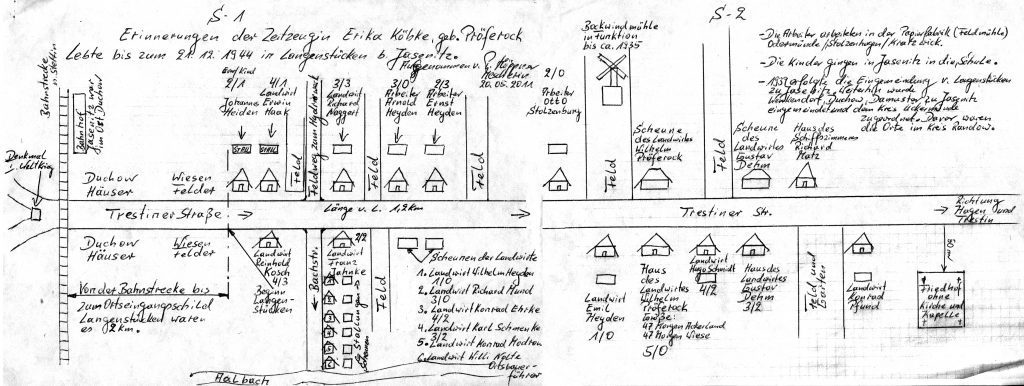 S-1
Erinnerungen der Zeitzeugin Erika Köbke, geb. Präferock
Lebte bis zum 21.12.1944 in Langenstücken b. Jasenitz.
Aufgenommen v.
20.05.2011
Bahnstrecke
n. Stettin
Bahnhof
Jasenitz
im Ort Duchow
Denkmal
1. Weltkrieg
Erw/Kind
2/1
Johanne
Heiden
4/1
Landwirt
Erwin
Haak
Stall
Stall
Feld
Feldweg zum
3/3
Landwirt
Richard
Noggert
Feld
3/0
Arbeiter
Arnold
Heyden
2/3
Arbeiter
Ernst
Heyden
Feld
Duchow
Häuser
Wiesen
Felder
Trestiner Straße
Länge v. L. 1,2 km
Duchow
Häuser
Wiesen
Felder
Von der Bahnstrecke bis
zum Ortseingangschild
Langenstücken waren
es 2 km.
Landwirt
Reinhold
Kosch
4/3
Beginn
Langen-
stücken
Bachstr.
2/2
Landwirt
Franz
Jahnke
Stallungen
Scheunen
Feld
Scheunen der Landwirte
1. Landwirt Wilhelm Heyden
1/0
2. Landwirt Richard Mund
3/0
3. Landwirt Konrad Ehrke
4/2
4. Landwirt Karl Schmenke
3/2
5. Landwirt Konrad Modrow
6. Landwirt Willi Nolte
Ortsbauer-
führer
Aalbach
S-2
Bockwindmühle
in funktion
bis ca. 1935
2/0
Arbeiter
Otto
Stolzenburg
Feld
Scheune
des Landwirtes
Wilhelm
Präferock
Feld
Scheune
des
Landwirtes
Gustav
Dehm
Haus des
Schiffszimmerers
Richard
Matz
- Die Arbeiter arbeiteten in der Papierfabrik (Feldmühle)
Odermünde / Stolzenhagen / Kratzwick.
- Die Kinder gingen in Jasenitz in die Schule.
- 1939 erfolgte die Eingemeindung v. Langenstücken
zu Jasenitz. Weiterhin wurde
Wenkendorf, Duchow, Damuster zu Jasenitz
eingemeindet und dem Kreis Uckermünde
zugeordnet. Davor waren
die Orte im Kreis Randow.
Trestiner Str.
Richtung
Hagen und
Trestin
Landwirt
Emil
Heyden
1/0
Haus
des
Landwirtes
Wilhelm
Präferock
Größe:
47 Morgen Ackerland
47 Morgen Wiese
5/0
Landwirt
Hugo Schmidt
4/2
Haus des
Landwirtes
Gustav
Dehm
3/2
Feld und
Garten
Landwirt
Konrad
Pfund
50 m
Friedhof
ohne
Kirche und
Kapelle